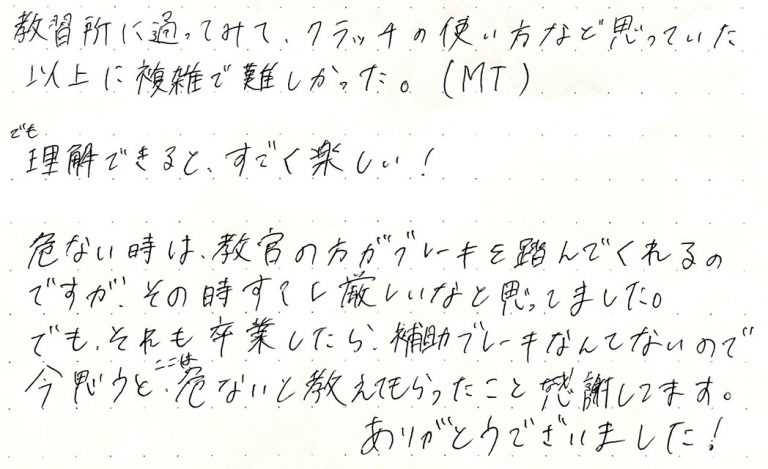 教習所に通ってみて、クラッチの使い方など思っていた
以上に複雑で難しかった。(MT)
でも
理解できると、すごく楽しい!
危ない時は、教官の方がブレーキを踏んでくれるの
ですが、その時すこし厳しいなと思ってました。
でも、それも卒業したら、補助ブレーキなんてないので
今思うと、ここは危ないと教えてもらったこと感謝してます。
ありがとうございました!